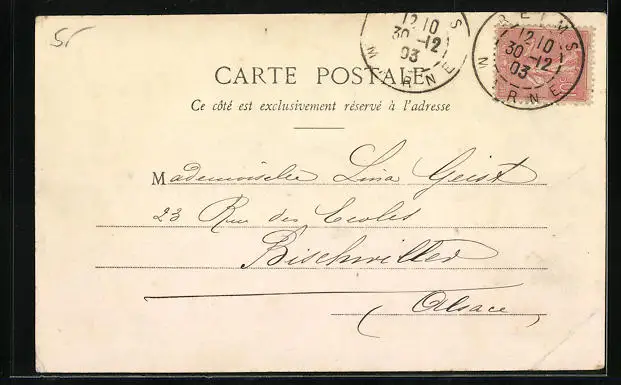 5.
REIMS
12 10
30-12
03
MARNE
REIMS
12 10
30-12
03
MARNE
CARTE POSTALE
Ce côté est exclusivement réservé à l'adresse
Mademoiselle Lina Geist
23 Rue des Ecoles
Bischwiller
(Alsace)